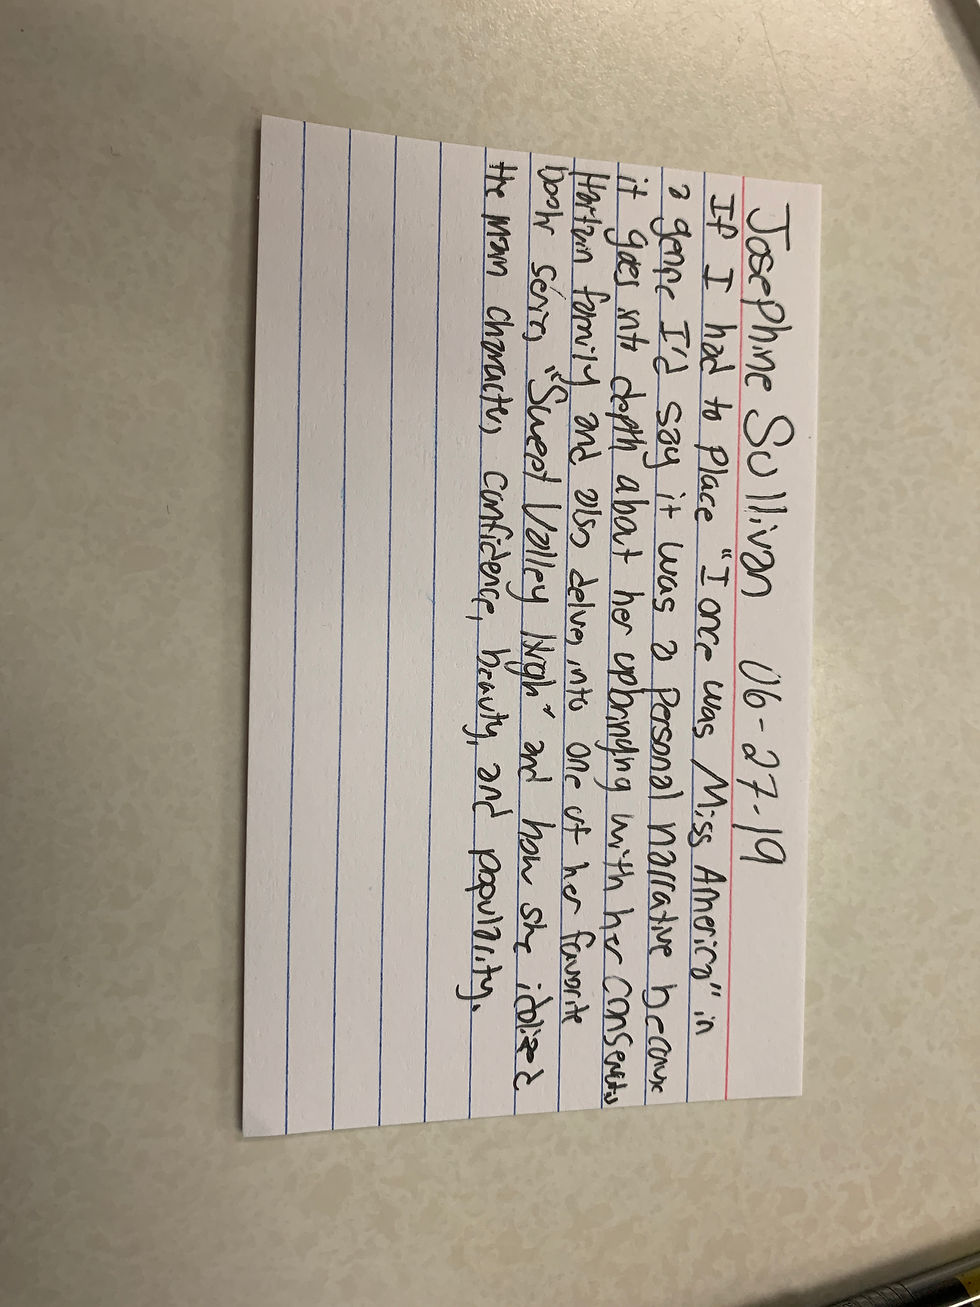 Josephine Sullivan 06-27-19
If I had to place "I once was Miss America" in
a genre I'd say it was a personal narrative because
it goes into depth about her upbringing with her
family and also delves into one of her favorite
book series, "Sweet Valley High" and how she idolized
the main characters confidence, beauty, and popularity.